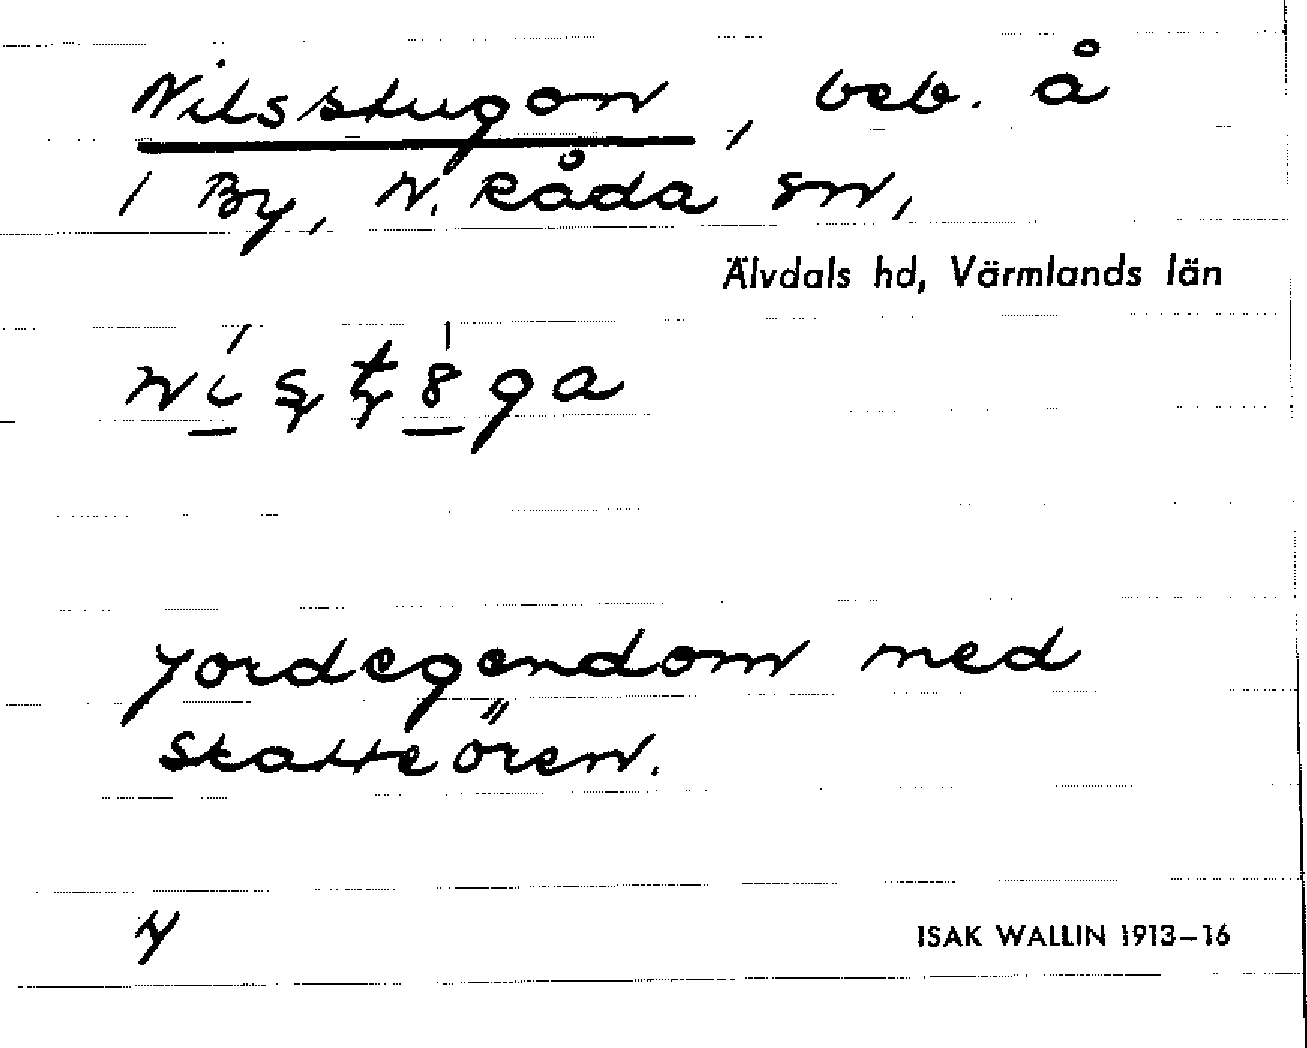 Nilsstugan, beb. å
1 By, N. Råda sn,
Älvdals hd, Värmlands län
jordegendom med
skatteören.
ISAK WALLIN 1913-16